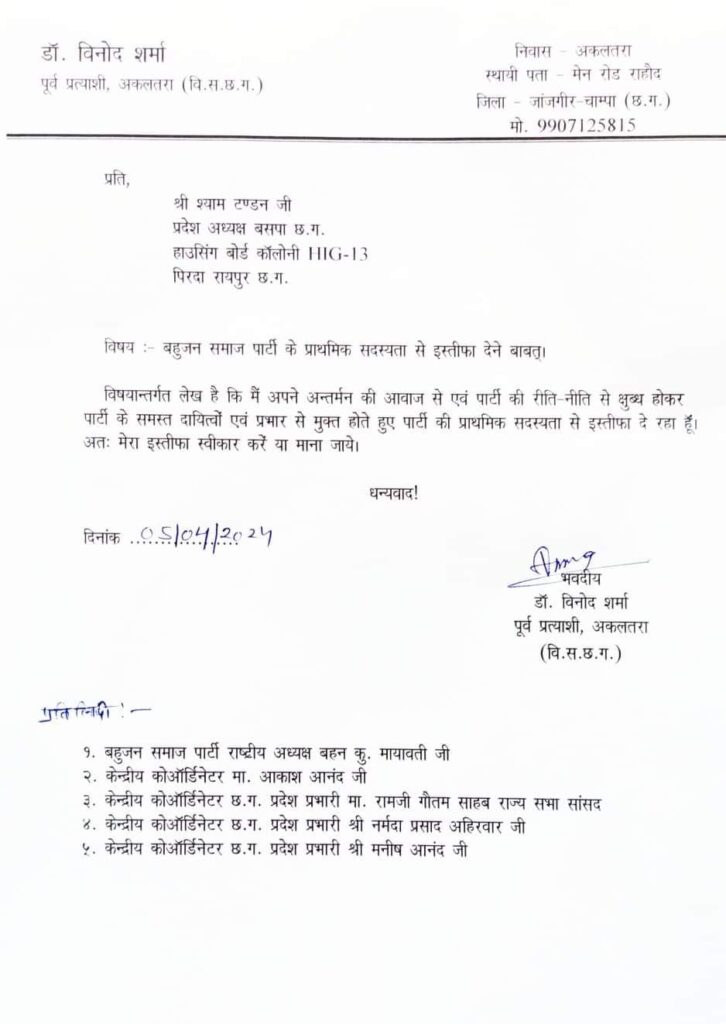 डॉ. विनोद शर्मा
पूर्व प्रत्याशी, अकलतरा (वि.स.छ.ग.)
निवास - अकलतरा
स्थायी पता - मेन रोड राहौद
जिला - जांजगीर-चाम्पा (छ.ग.)
मो. 9907125815
प्रति,
श्री श्याम टण्डन जी
प्रदेश अध्यक्ष बसपा छ.ग.
हाउसिंग बोर्ड कॉलोनी HIG-13
पिरदा रायपुर छ.ग.
विषय :- बहुजन समाज पार्टी के प्राथमिक सदस्यता से इस्तीफा देने बाबत्।
विषयान्तर्गत लेख है कि मैं अपने अन्तर्मन की आवाज से एवं पार्टी की रीति-नीति से क्षुब्ध होकर
पार्टी के समस्त दायित्वों एवं प्रभार से मुक्त होते हुए पार्टी की प्राथमिक सदस्यता से इस्तीफा दे रहा हूँ।
अतः मेरा इस्तीफा स्वीकार करें या माना जाये।
धन्यवाद!
दिनांक 05/04/2024
भवदीय
डॉ. विनोद शर्मा
पूर्व प्रत्याशी, अकलतरा
(वि.स.छ.ग.)
प्रतिलिपी :-
१. बहुजन समाज पार्टी राष्ट्रीय अध्यक्ष बहन कु. मायावती जी
२. केन्द्रीय कोऑर्डिनेटर मा. आकाश आनंद जी
३. केन्द्रीय कोऑर्डिनेटर छ.ग. प्रदेश प्रभारी मा. रामजी गौतम साहब राज्य सभा सांसद
४. केन्द्रीय कोऑर्डिनेटर छ.ग. प्रदेश प्रभारी श्री नर्मदा प्रसाद अहिरवार जी
५. केन्द्रीय कोऑर्डिनेटर छ.ग. प्रदेश प्रभारी श्री मनीष आनंद जी